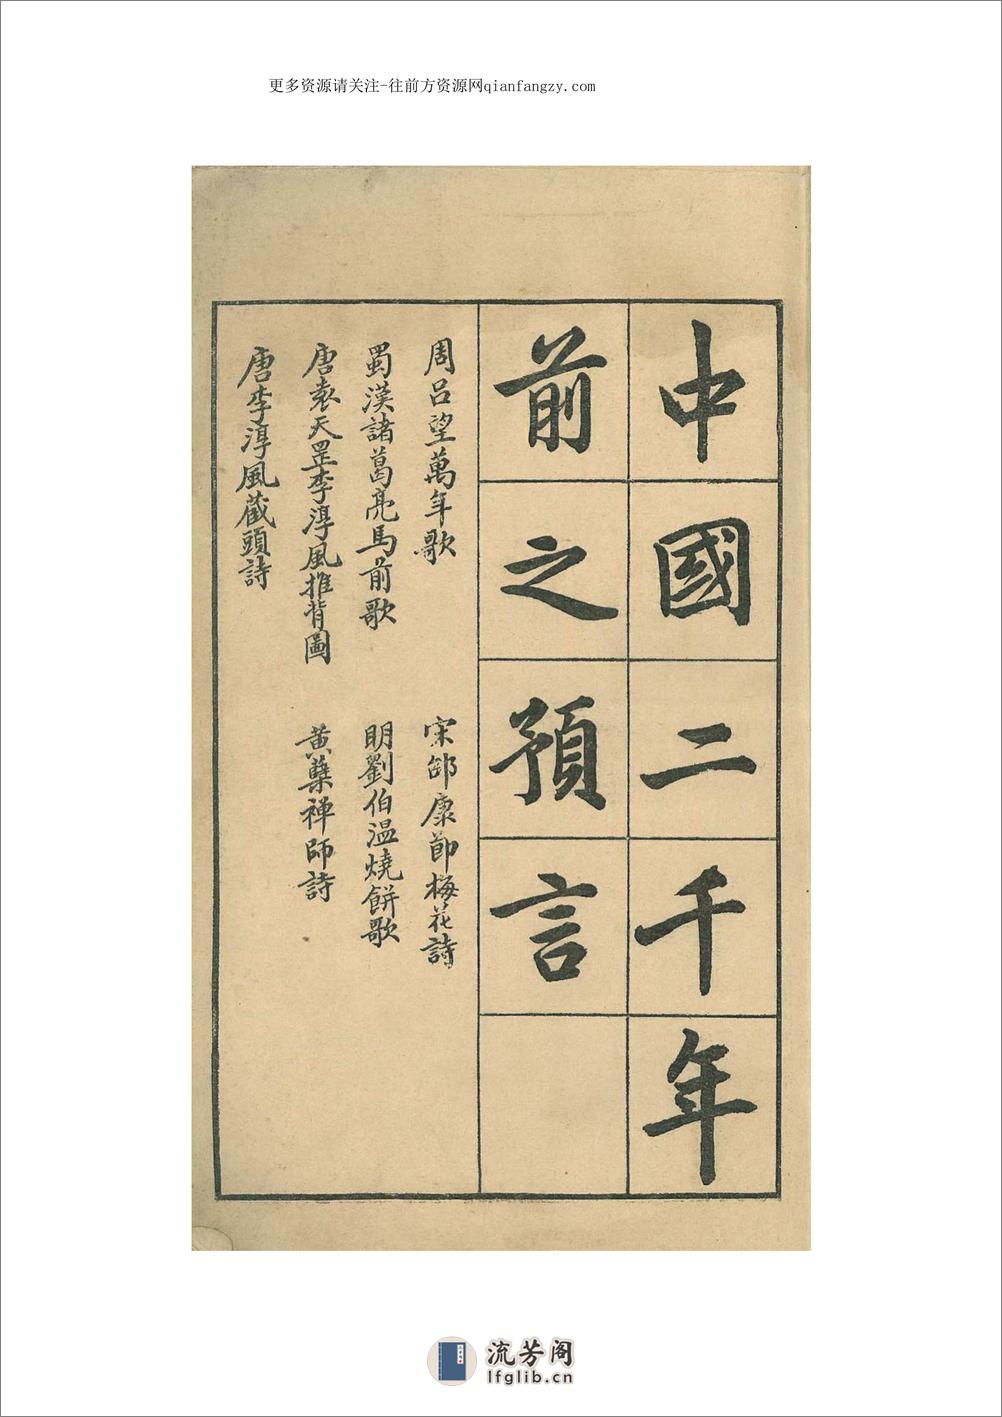 更多资源请关注-往前方资源网qianfangzy.com
中國二千年
前之預言
周呂望萬年歌
宋邵康節梅花詩
蜀漢諸葛亮馬前歌
明劉伯温燒餅歌
唐袁天罡李淳風推背圖
黄蘗禅師詩
唐李淳風藏頭詩
流芳阁
lfglib.cn